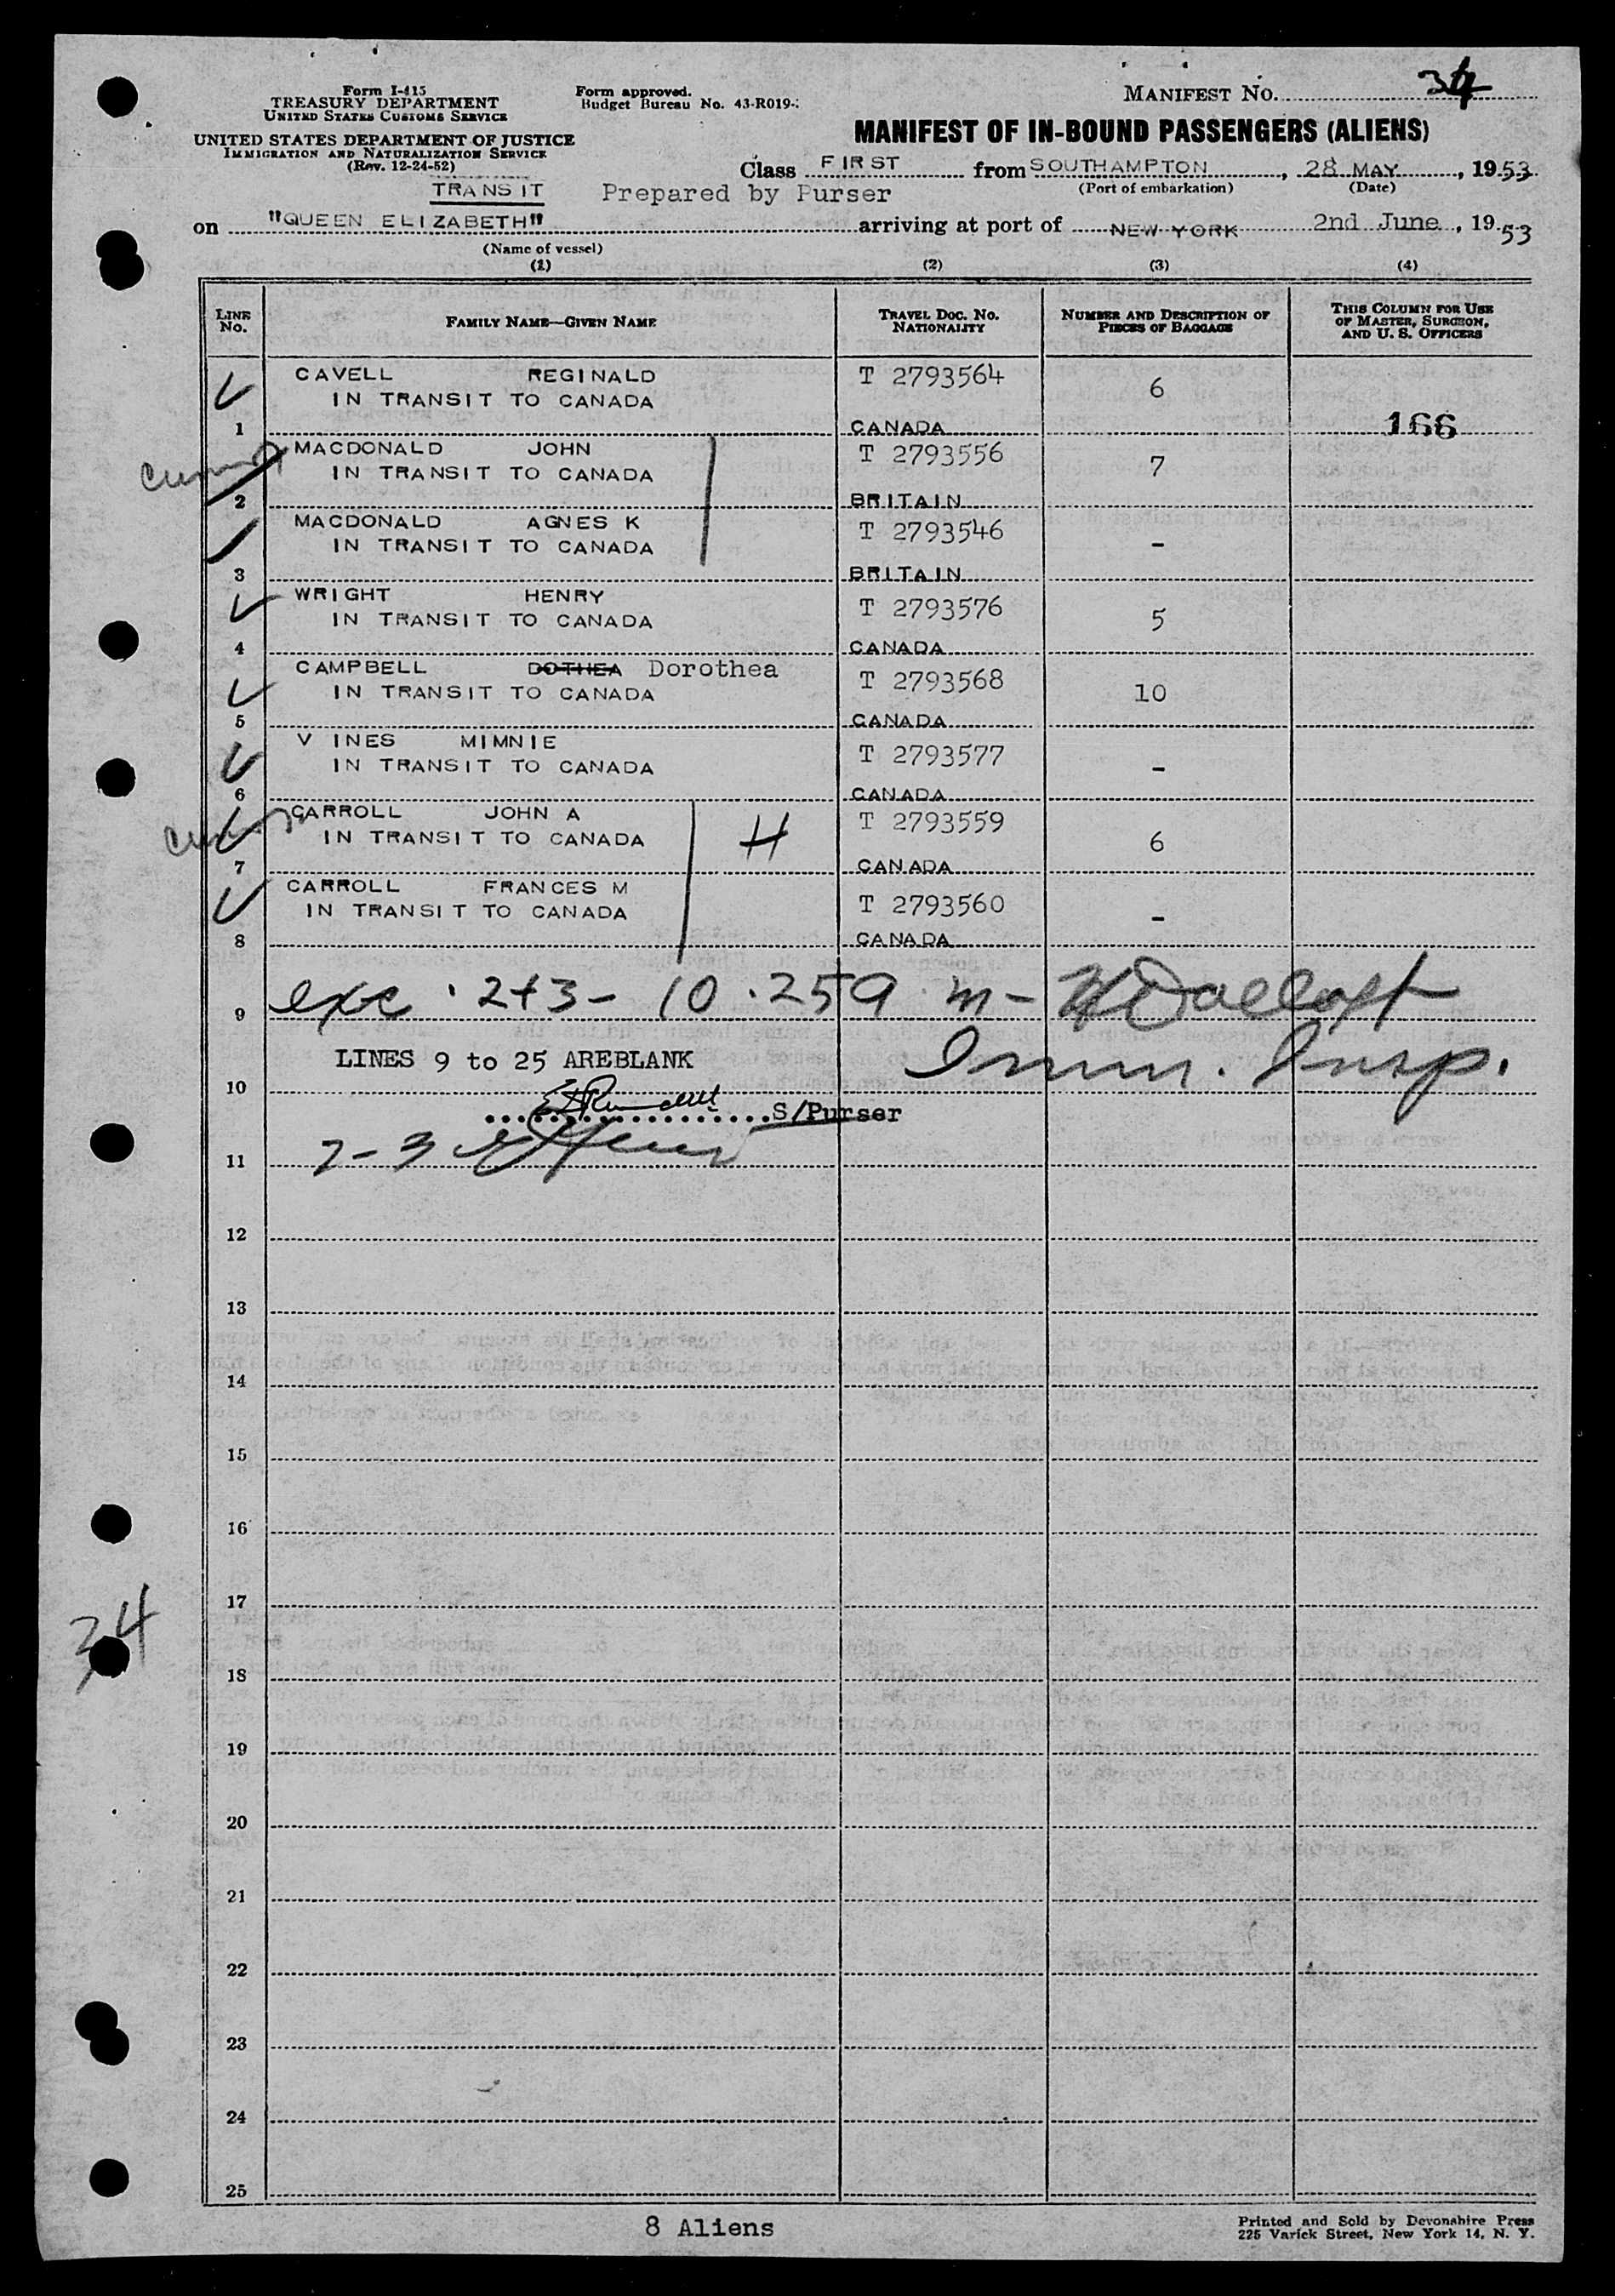 Form I-415
TREASURY DEPARTMENT
UNITED STATES CUSTOMS SERVICE
UNITED STATES DEPARTMENT OF JUSTICE
IMMIGRATION AND NATURALIZATION SERVICE
(Rev. 12-24-52)
Form approved.
Budget Bureau No. 43-R019-
MANIFEST NO. 34
MANIFEST OF IN-BOUND PASSENGERS (ALIENS)
Class FIRST from SOUTHAMPTON, 28 MAY, 1953
(Port of embarkation) (Date)
TRANSIT Prepared by Purser
on "QUEEN ELIZABETH" arriving at port of NEW YORK 2nd June, 1953
(Name of vessel)
(1) (2) (3) (4)
LINE No. FAMILY NAME—GIVEN NAME TRAVEL DOC. NO. NATIONALITY NUMBER AND DESCRIPTION OF PIECES OF BAGGAGE THIS COLUMN FOR USE OF MASTER, SURGEON, AND U. S. OFFICERS
CAVELL REGINALD T 2793564 6
IN TRANSIT TO CANADA
1 CANADA 166
MACDONALD JOHN T 2793556 7
IN TRANSIT TO CANADA
2 BRITAIN
MACDONALD AGNES K T 2793546 -
IN TRANSIT TO CANADA
3 BRITAIN
WRIGHT HENRY T 2793576 5
IN TRANSIT TO CANADA
4 CANADA
CAMPBELL DOTHEA Dorothea T 2793568 10
IN TRANSIT TO CANADA
5 CANADA
V INES MIMNIE T 2793577 -
IN TRANSIT TO CANADA
6 CANADA
CARROLL JOHN A T 2793559 6
IN TRANSIT TO CANADA H
7 CANADA
CARROLL FRANCES M T 2793560 -
IN TRANSIT TO CANADA
8 CANADA
9 exc. 2+3- 10.25 9 m-
LINES 9 to 25 AREBLANK Imm. Insp.
10
S/Purser
11 2-3
12
13
14
15
16
17
34
18
19
20
21
22
23
24
25
8 Aliens
Printed and Sold by Devonshire Press
225 Varick Street, New York 14, N. Y.